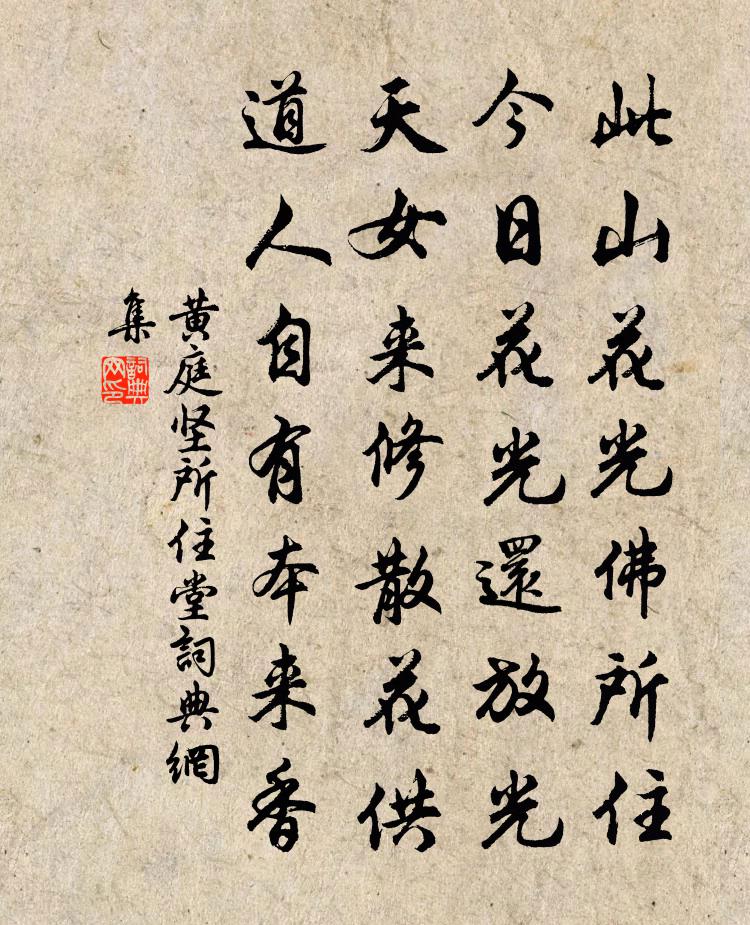 此山花光佛所住
今日花光還放光
天女来修散花供
道人自有本来香
黄庭坚所住堂詞典網
集
詞典
网印